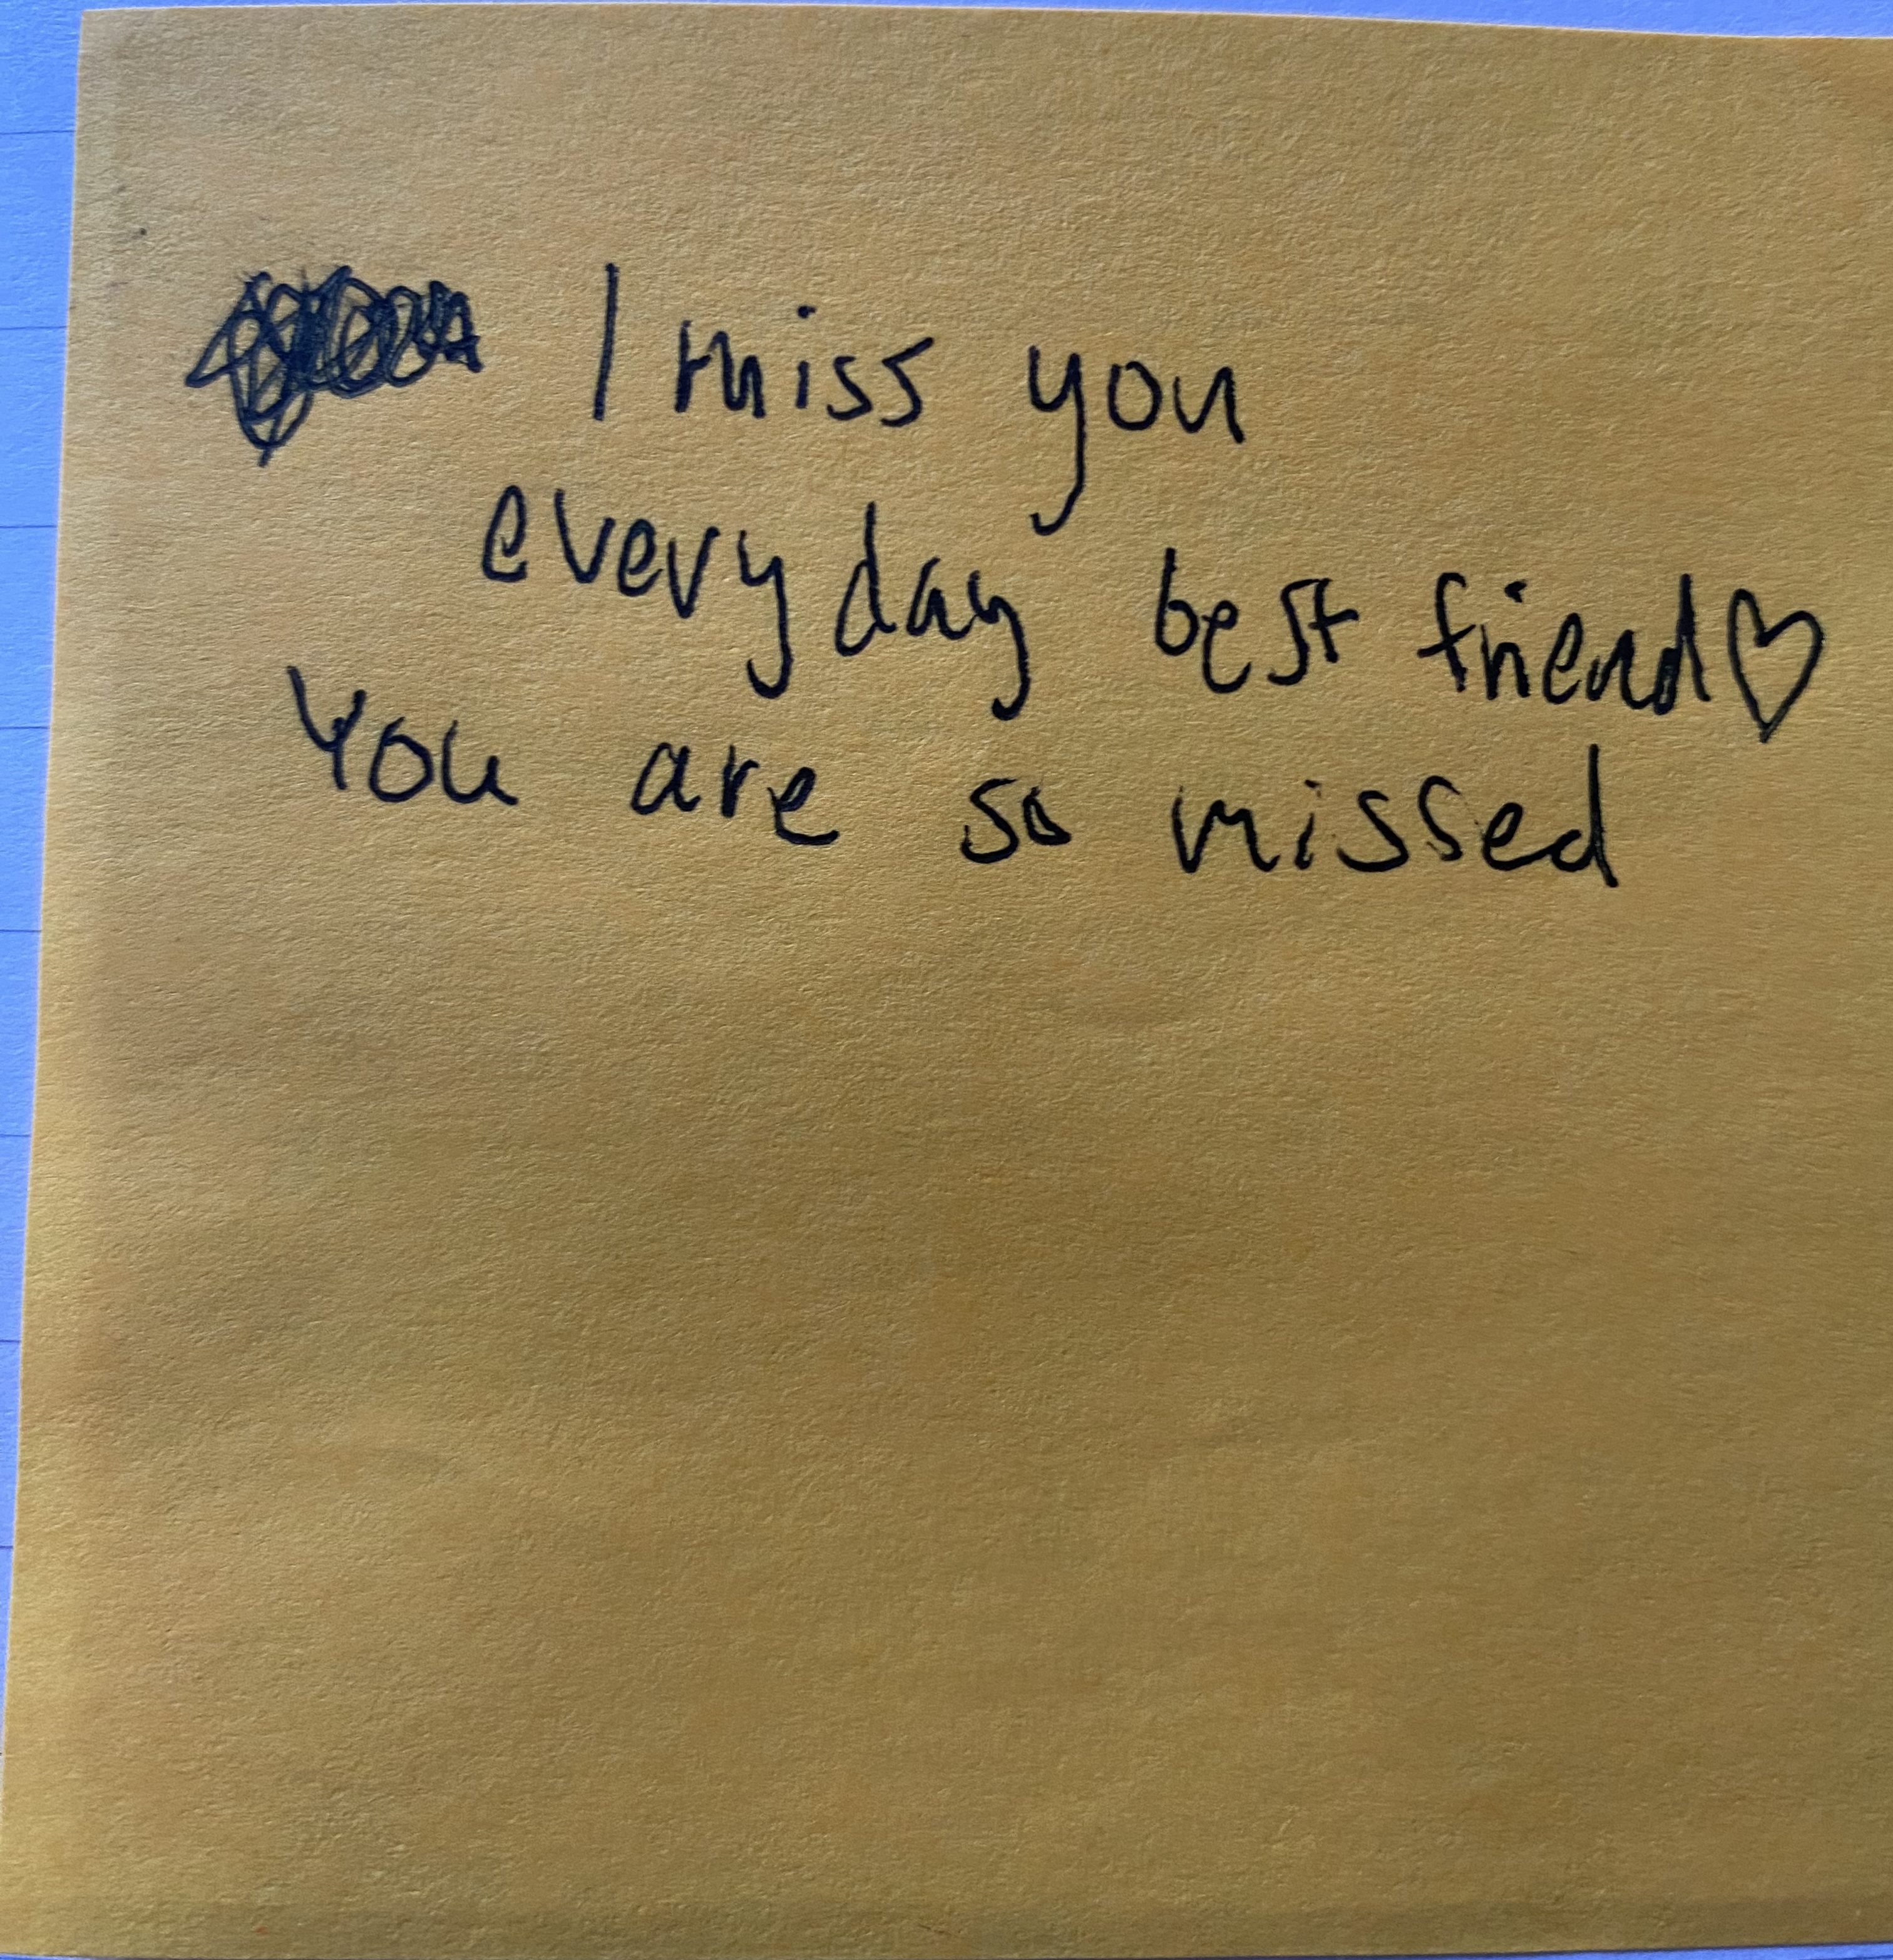 I miss you
everyday best friend♡
You are so missed